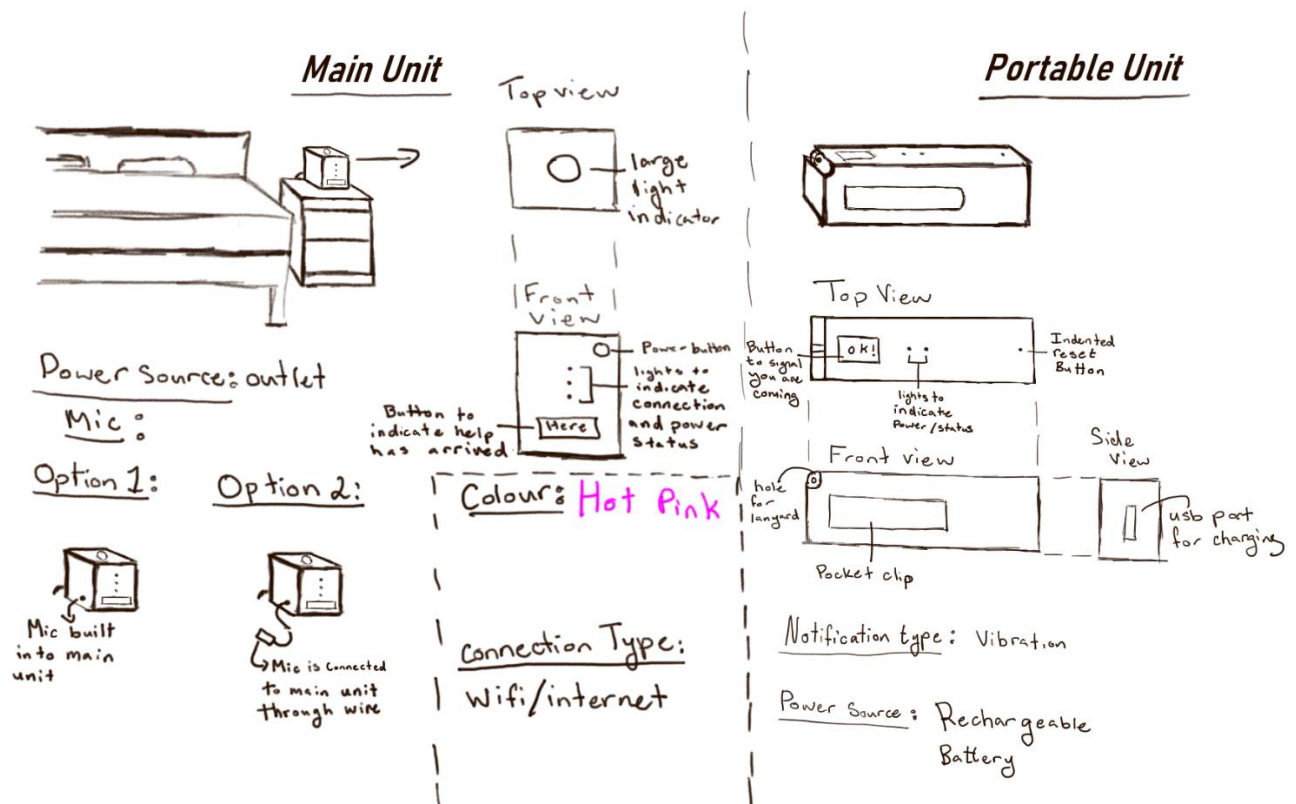 Main Unit
Top view
large
light
indicator
Front
View
Power button
lights to
indicate
connection
and power
status
Button to
indicate help
has arrived
Here
Power Source: outlet
Mic:
Option 1:
Mic built
into main
unit
Option 2:
Mic is connected
to main unit
through wire
Colour: Hot Pink
Connection Type:
Wifi/internet
Portable Unit
Top View
Button
to signal
you are
coming
ok!
lights to
indicate
Power/status
Indented
reset
Button
Front view
hole
for
lanyard
Pocket clip
Side
View
usb port
for charging
Notification type: Vibration
Power Source: Rechargeable
Battery